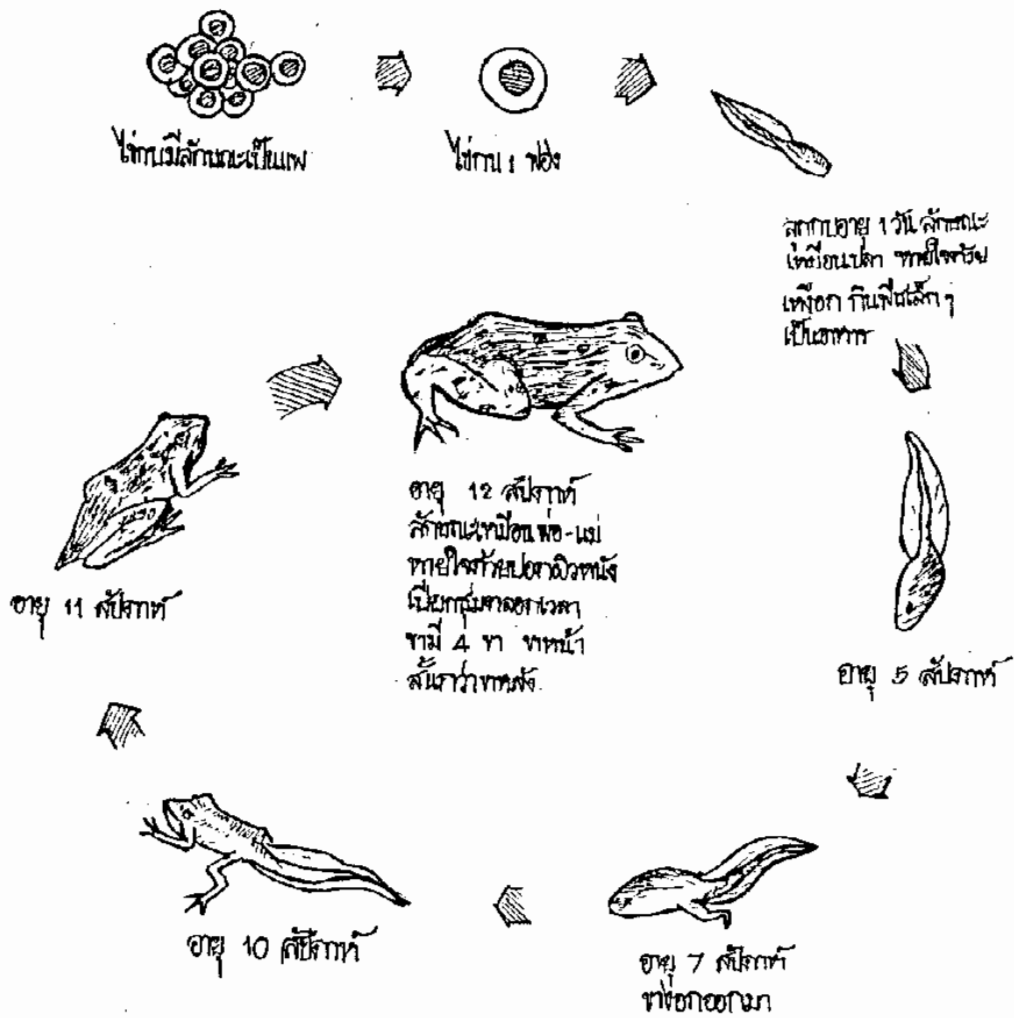 ไข่กบมีลักษณะเป็นแพ
ไข่กบ 1 ฟอง
ลูกกบอายุ 1 วัน ลักษณะ
เหมือนปลา หายใจด้วย
เหงือก กินพืชเล็ก ๆ
เป็นอาหาร
อายุ 5 สัปดาห์
อายุ 7 สัปดาห์
ขางอกออกมา
อายุ 10 สัปดาห์
อายุ 11 สัปดาห์
อายุ 12 สัปดาห์
ลักษณะเหมือนพ่อ-แม่
หายใจด้วยปอดผิวหนัง
เปียกชุ่มตลอดเวลา
ขามี 4 ขา ขาหน้า
สั้นกว่าขาหลัง